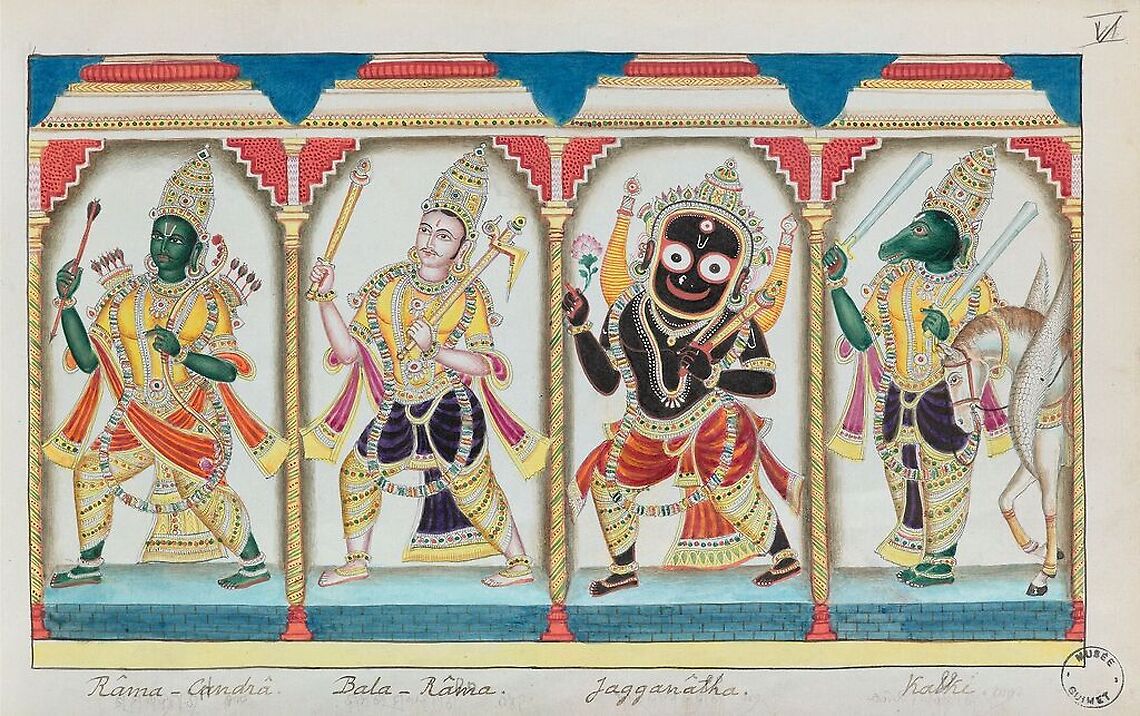 VI
Râma - Candrâ.
Bala - Râma.
Jagganâtha.
Kalki.
MUSÉE
GUIMET